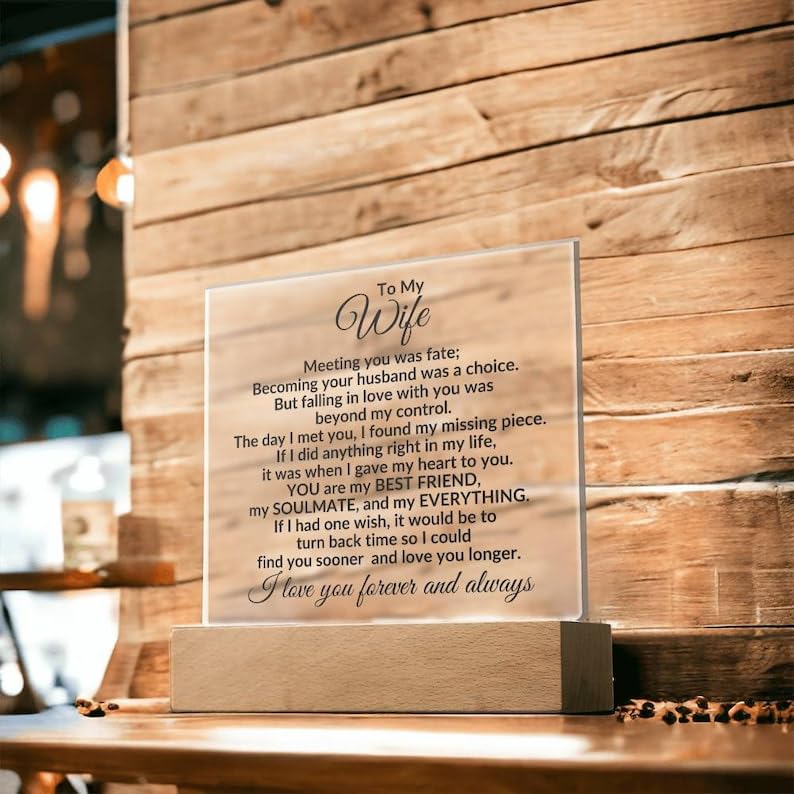 To My
Wife
Meeting you was fate;
Becoming your husband was a choice.
But falling in love with you was
beyond my control.
The day I met you, I found my missing piece.
If I did anything right in my life,
it was when I gave my heart to you.
YOU are my BEST FRIEND,
my SOULMATE, and my EVERYTHING.
If I had one wish, it would be to
turn back time so I could
find you sooner and love you longer.
I love you forever and always